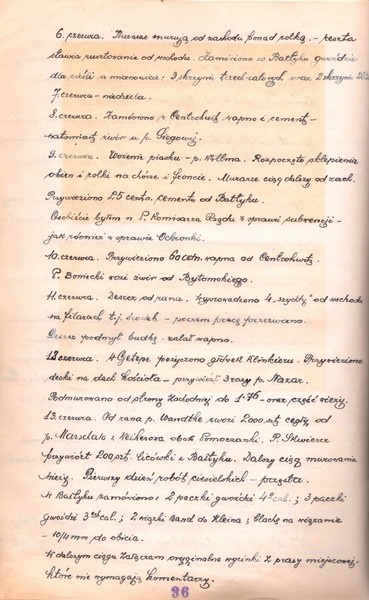 6. czerwca. Murarze murują od zachodu ponad rolką. - reszta
stawia rusztowanie od wschodu. Zamówiono w Bałtyku gwoździe
dla cieśli a mianowicie: 3 skrzynie trzech calowych oraz 2 skrzynie
7. czerwca - niedziela.
8. czerwca. Zamówiono w Centrohucie wapno i cement -
natomiast żwir u p.
9. czerwca. Wożenie piasku - p. Hollma. Rozpoczęto sklepienia
okien i rolki na chórze i froncie. Murarze ciąg dalszy od zach.
Przywieziono 25 centn. cementu od Bałtyku.
Osobiście byłem u P. Komisarza Rządu w sprawie subwencji -
jak również w sprawie Ochronki.
10. czerwca. Przywieziono 60 cetn. wapna od Centrohuty.
P. Boniecki wozi żwir od Bytomskiego.
11. czerwca. Deszcz od rana. Wyprowadzono 4 „szychty" od wschodu
na filarach t.j. - poczem pracę przerwano.
Deszcz podmył budkę - zalał wapno.
12 czerwca. W Gdyni pożyczono Klinkieru. Przywieziono
deski na dach kościoła - przywiózł 3 razy p. Nazar.
Podmurowano od strony zachodniej do 1.76 - oraz część wieży.
13. czerwca. Od rana p. Wandtke zwozi 2000 szt. cegły od
p. Marszała z Wejherowa obok Pomorzanki. P. Skwiercz
przywiózł 200 szt. licówki z Bałtyku. Dalszy ciąg murowania
wieży. Pierwszy dzień robót ciesielskich - przęsła.
W Bałtyku zamówiono: 2 paczki gwoździ 4° cal.; 3 paczki
gwoździ 3 cal.; 2 wiązki band do Kleina; blachę na wiązanie
- 10/4 mm do obicia.
W dalszym ciągu załączam oryginalne wycinki z prasy miejscowej,
które nie wymagają komentarzy.
36